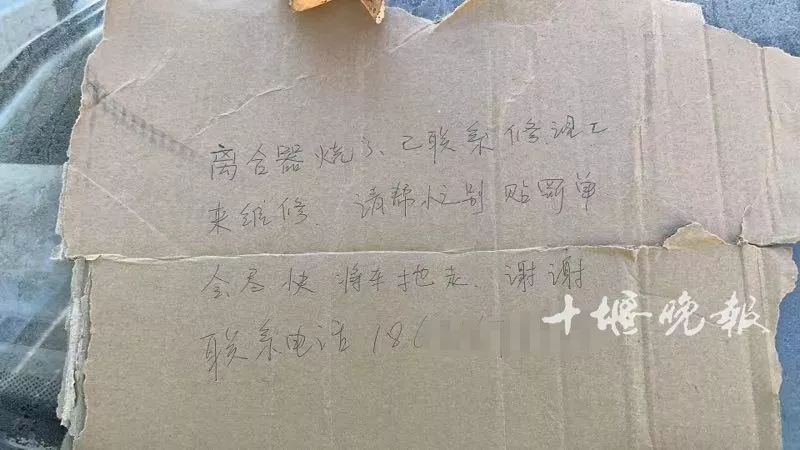 离合器烧了、已联系修理工
来维修. 请帮忙别贴罚单
会尽快将车拖走、谢谢
联系电话 18
十堰晚报